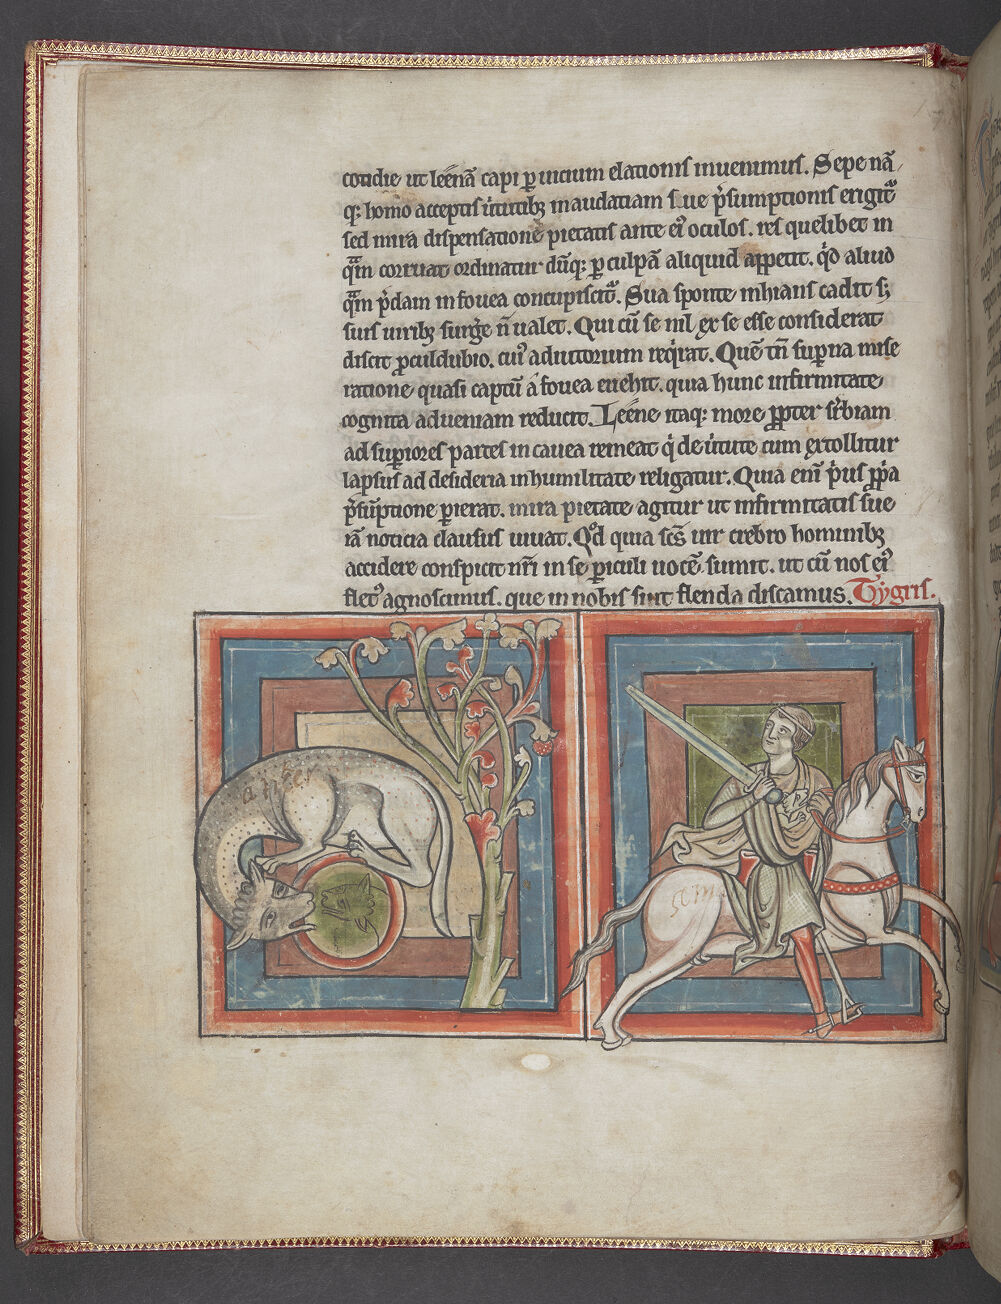 cotidie ut leenā capi ꝑ uicium elationis inuenimus. Sepe nā
q; homo acceptis ũtutibꝫ in audatiam sue p̃sumptionis erigit᷑
sed mira dispensatione pietatis ante eiꝰ oculos. res quelibet in
q̄m corruat ordinatur dūq; ꝑ culpā aliquid appetit. qͦd aliud
q̄m p̃dam in fouea concupiscit᷑. Sua sponte inhians cadit sꝫ
suis uiribꝫ surg̃e n̄ ualet. Qui cū se nil ex se esse considerat
discit ꝓculdubio. cuiꝰ adiutorium reqͥrat. Quē tn̄ superna mise
ratione quasi captū a fouea euehit. quia hunc infirmitate
cognita ad ueniam reducit. Leene itaq; more ꝓpter
ad superiores partes in cauea remeat qͥ de ũtute cum extollitur
lapsus ad desideria in humilitate religatur. Quia enī pͥus ꝓpa
p̃sūptione ꝑierat. mira pietate agitur ut infirmitatis sue
iā noticia clausus uiuat. Qͦd quia sc̄s uir crebro hominibꝫ
accidere conspicit nr̄i in se ꝑiculi uocē sumit. ut cū nos eiꝰ
fletꝰ agnoscimus. que in nobis sint flenda discamus. Tygris.